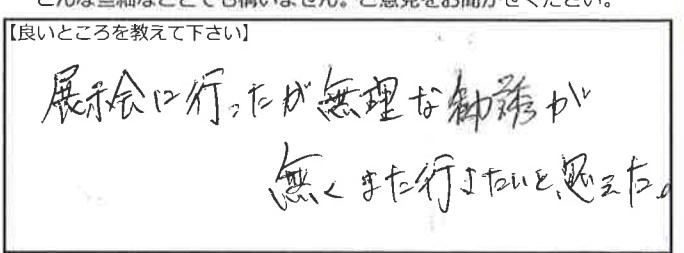 どんな些細なことでも構いません。ご意見をお聞かせください。
【良いところを教えて下さい】
展示会に行ったが無理な勧誘が
無くまた行きたいと思えた。